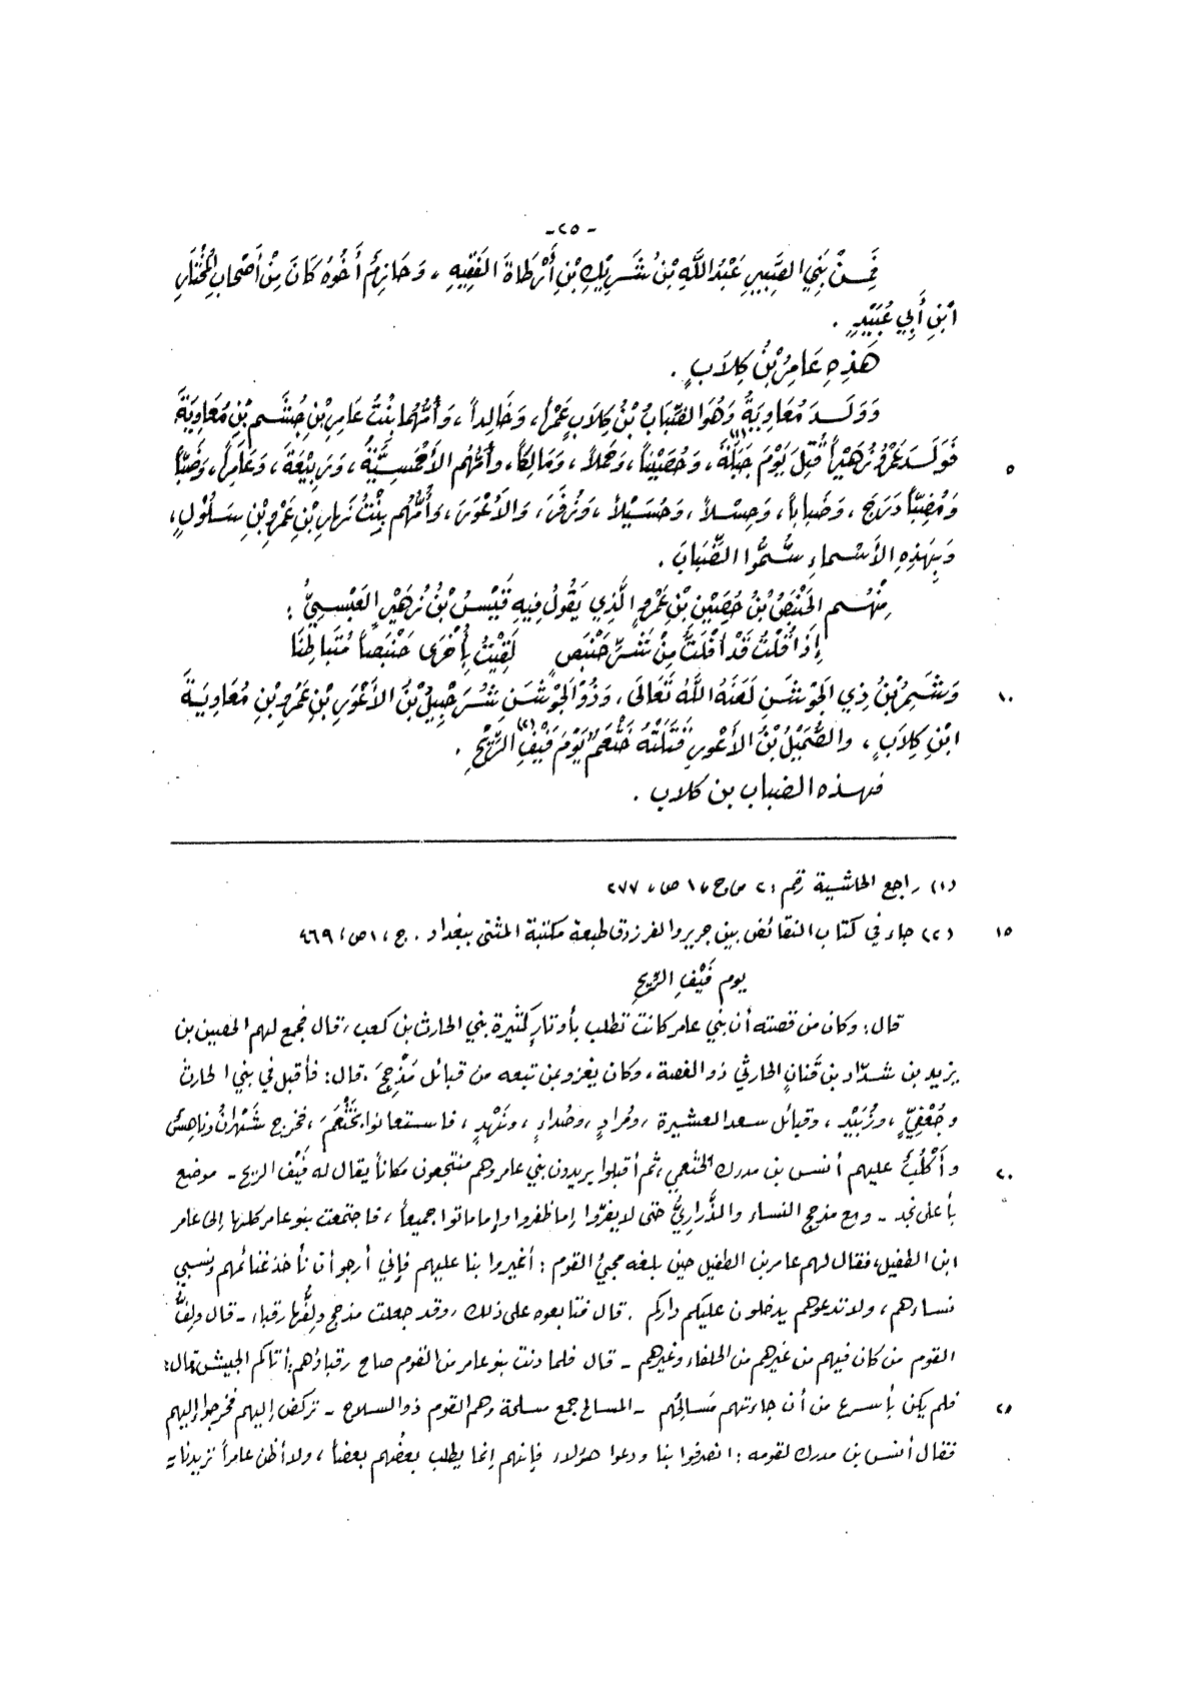 -٢٥-
فَمِنْ بَنِي الصَّبِيرِ عَبْدُ اللَّهِ بْنُ شَرِيكِ بْنِ أَرْطَاةَ الفَقِيهِ ، وَحَازِمٌ أَخُوهُ كَانَ مِنْ أَصْحَابِ المُخْتَارِ
ابْنِ أَبِي عُبَيْدٍ .
هَذِهِ عَامِرُ بْنُ كِلاَبٍ .
وَوَلَدَ مُعَاوِيَةُ وَهُوَ الضِّبَابُ بْنُ كِلاَبٍ عَمْراً ، وَخَالِداً ، وَأُمُّهُما بِنْتُ عَامِرِ بْنِ جُشَمِ بْنِ مُعَاوِيَةَ
٥ فَوَلَدَ عَمْرُو زُهَيْراً قُتِلَ يَوْمَ جَبَلَةَ(١) ، وَحُصَيْناً ، وَحَمَلاً ، وَمَالِكاً ، وأُمُّهُم الأَحْمَسِيَّةُ ، وَرَبِيْعَةَ ، وَعَامِراً ، وَضَبّاً
وَمُضِبّاً دَرَجَ ، وَضَبَاباً ، وَحِسْلاً ، وَحُسَيْلاً ، وَزُفَرَ ، وَالأَعْوَرَ ، وَأُمُّهُم بِنْتُ نَهَارِ بْنِ عَمْرِو بْنِ سَلُولٍ ،
وَبِهَذِهِ الأَسْماءِ سُمُّوا الضِّبَابَ .
مِنْهُم الحَنْبَصُ بْنُ حُصَيْنِ بْنِ عَمْرٍو الَّذِي يَقُولُ فِيهِ قَيْسُ بْنُ زُهَيْرٍ العَبْسِيُّ :
إِذَا قُلْتُ قَدْ أَفْلَتُّ مِنْ شَرِّ حَنْبَصٍ لَقِيْتُ بِأُخْرَى حَنْبَصاً مُتَبَاطِنَا
١٠ وَشَمِرُ بْنُ ذِي الجَوْشَنِ لَعَنَهُ اللَّهُ تَعَالَى ، وَذُو الجَوْشَنِ شُرَحْبِيلُ بْنُ الأَعْوَرِ بْنِ عَمْرِو بْنِ مُعَاوِيَةَ
ابْنِ كِلاَبٍ ، والصُّمَيْلُ بْنُ الأَعْوَرِ قَتَلَتْهُ خَثْعَمُ يَوْمَ فَيْفِ(٢) الرِّيْحِ .
فهذه الضباب بن كلاب .
(١) راجع الحاشية رقم : ٢ من ج ، ١ ص ، ٢٧٧
١٥ (٢) جاء في كتاب النقائض بين جرير والفرزدق طبعة مكتبة المثنى ببغداد . ج ، ١ ص ، ٤٦٩
يوم فَيْفِ الرِّيحِ
قال : وكان من قصته أن بني عامر كانت تطلب بأوتارٍ كثيرة بني الحارث بن كعب ، قال فجمع لهم الحصين بن
يزيد بن شدّاد بن قَنانٍ الحارثي ذو الغصة ، وكان يغزو بمن تبعه من قبائل مَذْحِجَ . قال : فأقبل في بني الحارث
وجُعْفِيٍّ ، وزُبَيْد ، وقبائل سعد العشيرة ، ومُرادٍ ، وصُداءٍ ، ونَهْدٍ ، فاستعانوا بخَثْعَمَ ، فخرج شُهْرانُ وناهِسُ
٢٠ وأَكْلُبُ عليهم أنس بن مدرك الخثعمي ، ثم أقبلوا يريدون بني عامر وهم منتجعون مكاناً يقال له فَيْف الريح - موضع
بأعلى نجد - ومع مذحج النساء والذَّراريُّ حتى لا يفرّوا إما ظفروا وإما ماتوا جميعاً ، فاجتمعت بنو عامر كلها إلى عامر
ابن الطفيل ، فقال لهم عامر بن الطفيل حين بلغه مجيءُ القوم : أغيروا بنا عليهم فإني أرجو أن نأخذ غنائمهم ونسبي
نساءهم ، ولا تدعوهم يدخلون عليكم داركم . قال فتابعوه على ذلك ، وقد جعلت مذحج ولِفُّها رقباء - قال ولِفُّ
القوم من كان فيهم من غيرهم من الحلفاء وغيرهم - قال فلما دنت بنو عامر من القوم صاح رقباؤهم : أتاكم الجيش قال :
٢٥ فلم يكن بأسرع من أن جاءتهم مَسالِحُهم - المسالح جمع مسلحة وهم القوم ذوو السلاح - تركض إليهم فخرجوا إليهم
فقال أنس بن مدرك لقومه : انصرفوا بنا ودعوا هؤلاء فإنهم إنما يطلب بعضُهم بعضاً ، ولا أظن عامراً تريدنا =